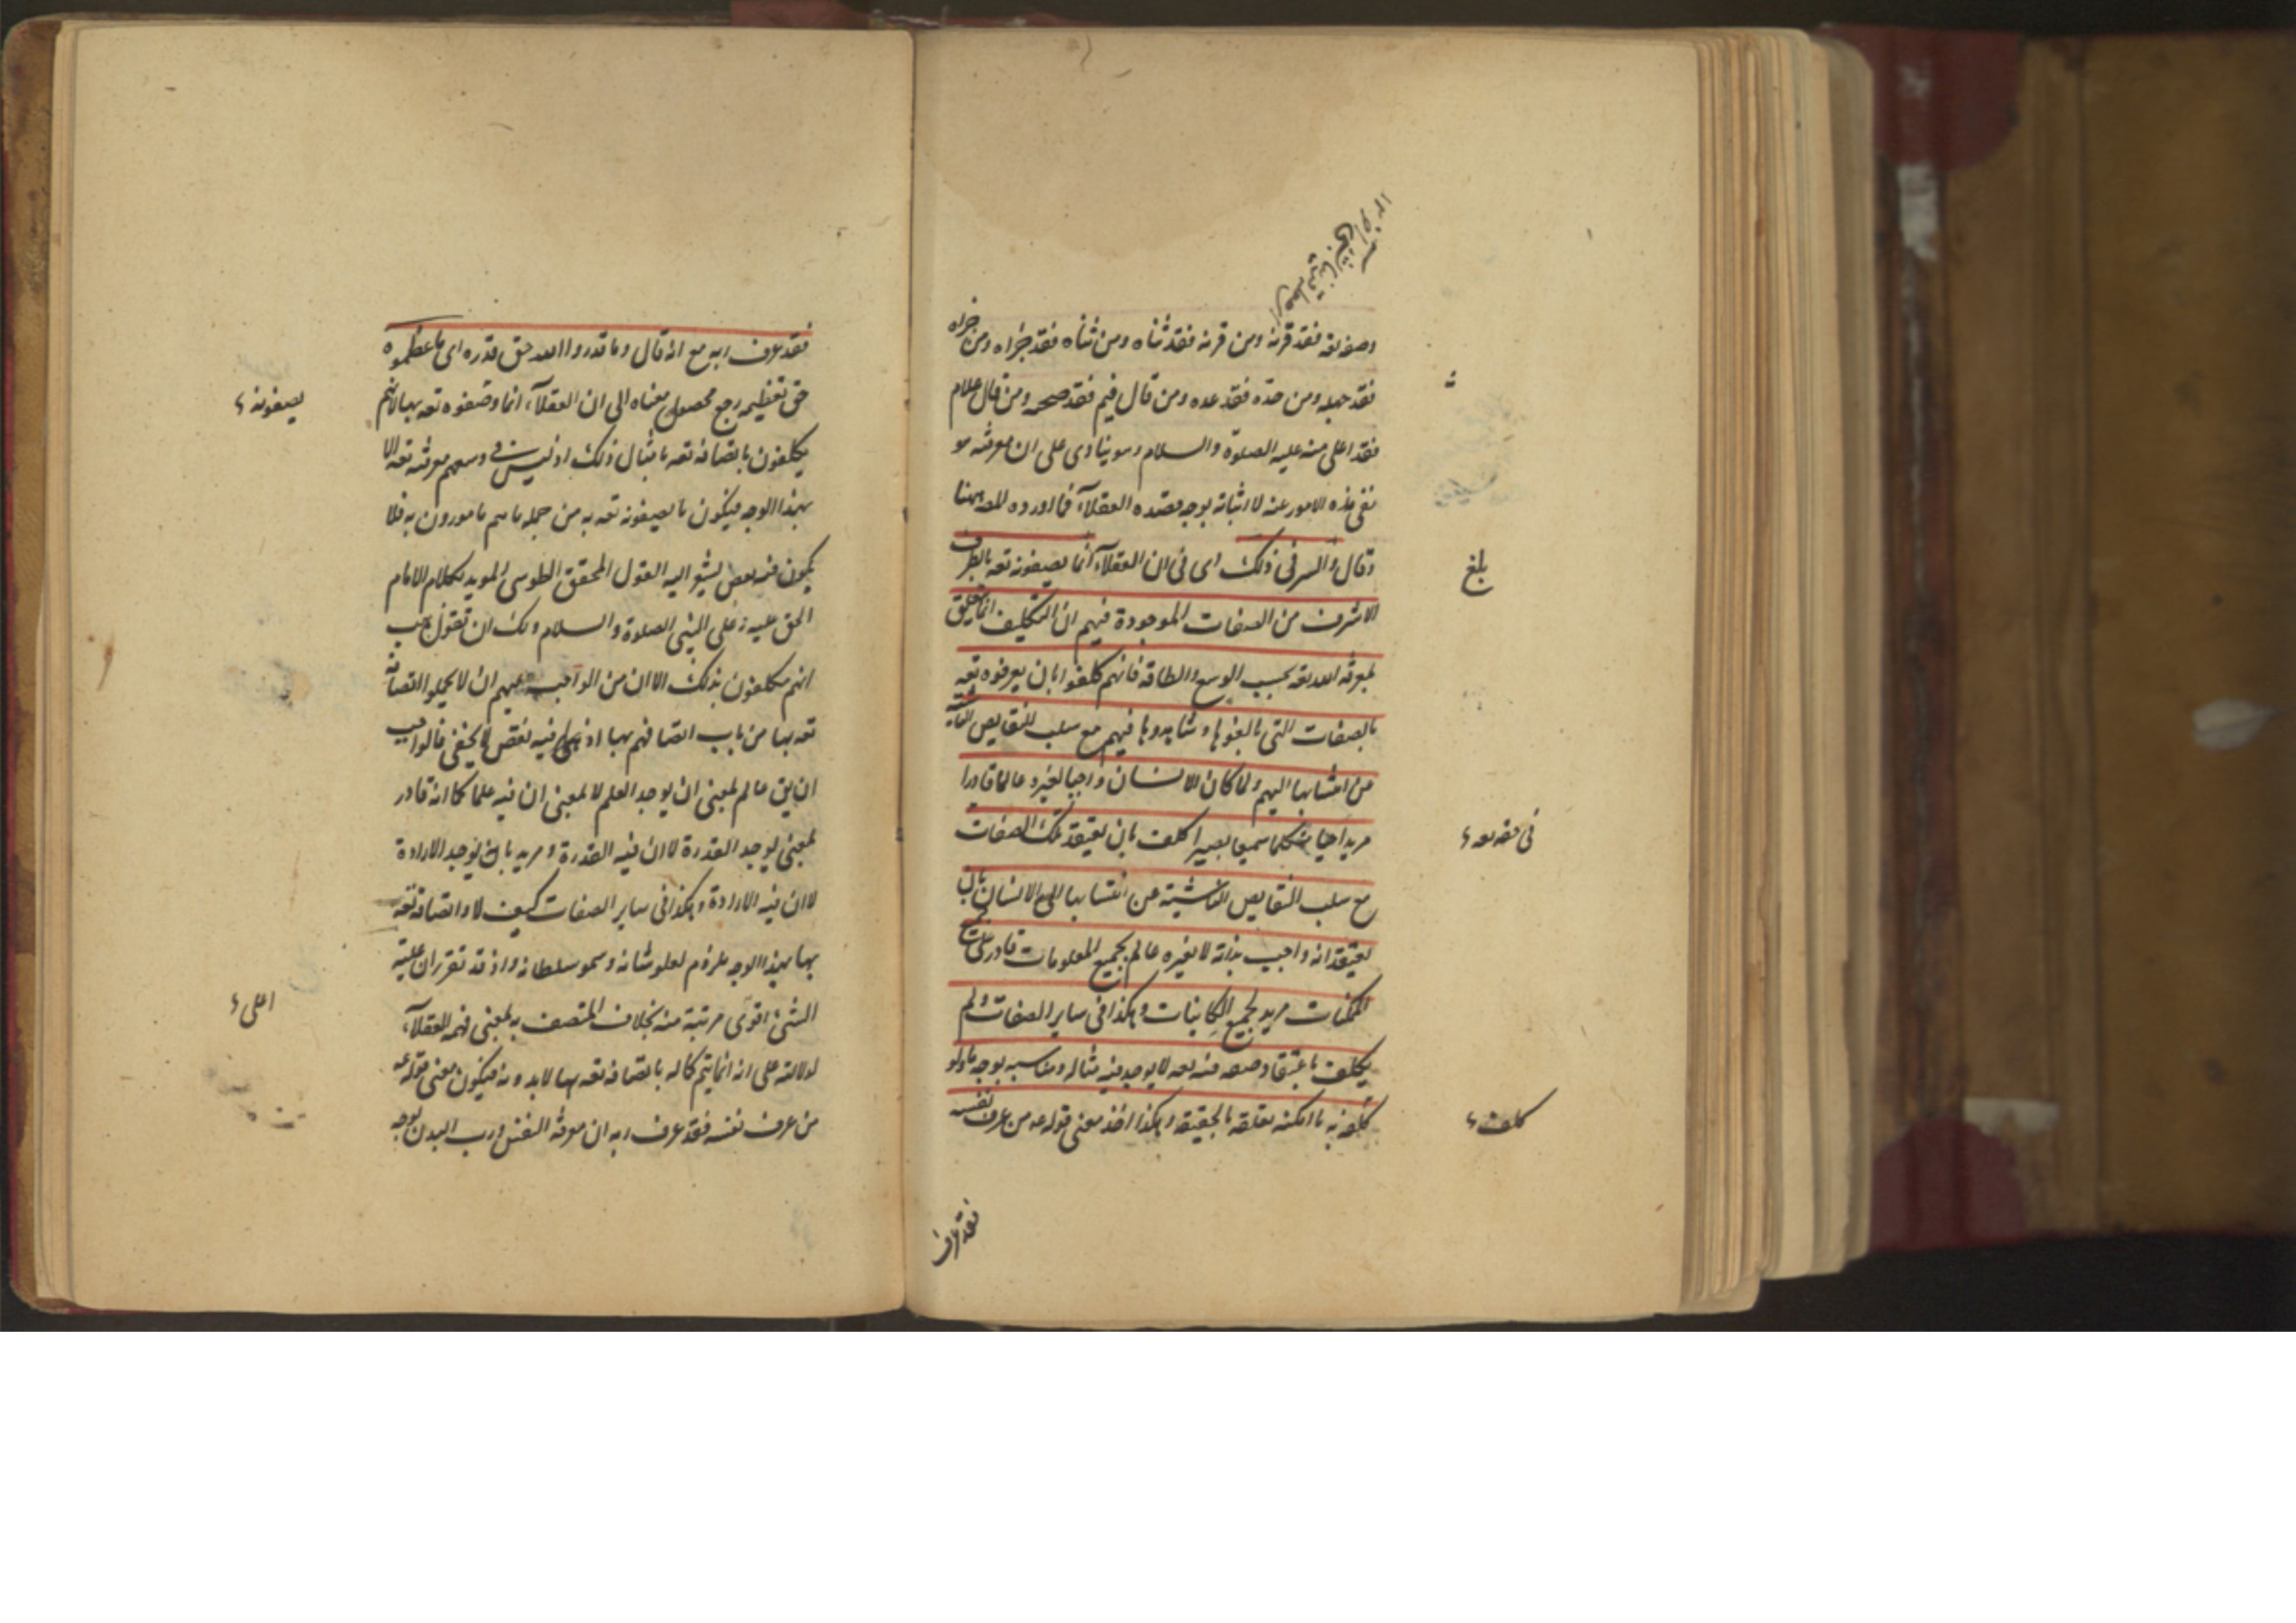 وصفه تعه فقد قرنه ومن قرنه فقد ثناه ومن ثناه فقد جزاه ومن جزاه
فقد جهله ومن حده فقد عده ومن قال فيم فقد ضمنه ومن قال علام
فقد اخلى منه عليه الصلوة والسلام وهو ينادى على ان معرفته هو
نفى هذه الامور عنه لا اثباته بوجه يقصده العقلاء فما اورده المص ههنا
وقال والسر فى ذلك اى فى ان العقلاء انما يصفونه تعه بالطرف
الاشرف من الصفات الموجودة فيهم ان التكليف انما يتعلق
بمعرفة الله تعه بحسب الوسع والطاقة فانهم كلفوا بان يعرفوه تعه
بالصفات التى الفوها وشاهدوها فيهم مع سلب النقايص الناشية
من انتسابها اليهم ولما كان الانسان واجبا لغيره عالما قادرا
مريدا حيا متكلما سميعا بصيرا كلف بان يعتقد تلك الصفات
فى حقه تعه
مع سلب النقايص الناشية عن انتسابها الى الانسان بان
يعتقد انه واجب بذاته لا بغيره عالم بجميع المعلومات قادر على جميع
الممكنات مريد لجميع الكاينات وهكذا فى ساير الصفات ولم
يكلف باعتقاد صفة فيه تعه لا يوجد فيه مثاله ومناسبه بوجه ما ولو
كلف به ما امكنه تعلقه بالحقيقة وهكذا اخذ معنى قوله عه من عرف نفسه
كلف
بلغ
فقد عرف
فقد عرف ربه مع انه قال وما قدروا الله حق قدره اى ما عظموه
حق تعظيمه رجع محصول معناه الى ان العقلاء انما وصفوه تعه بها لانهم
يصفونه
يكلفون باتصافه تعه بامثال ذلك اذ ليس فى وسعهم معرفته تعه الا
بهذا الوجه فيكون ما يصفونه تعه به من جمله ما هم مامورون به فلا
يكون فيه بعض يشير اليه القول المحقق الطوسى المويد بكلام الامام
الحق عليه وعلى النبى الصلوة والسلام ولك ان تقول هب
انهم مكلفون بذلك الا ان من الواجب عليهم ان لا يجعلوا اتصافه
تعه بها من باب اتصافهم بها اذ فيه نقص لا يخفى فالواجب
ان يق عالم بمعنى ان يوجد العلم لا بمعنى ان فيه علما كما انه قادر
بمعنى يوجد القدرة لا ان فيه القدرة ومريد بان يوجد الارادة
لا ان فيه الارادة وهكذا فى ساير الصفات كيف لا واتصافه تعه
بها بهذا الوجه ملزوم لعلو شانه وسمو سلطانه واذ قد تقرر ان علية
الشئ اقوى مرتبة منه بخلاف المتصف به بمعنى فهمه العقلاء
اعلى
لدلالته على انه انما يتم كماله باتصافه تعه بها لا بدونه فيكون معنى قوله عه
من عرف نفسه فقد عرف ربه ان معرفة النفس ورب البدن بوجه